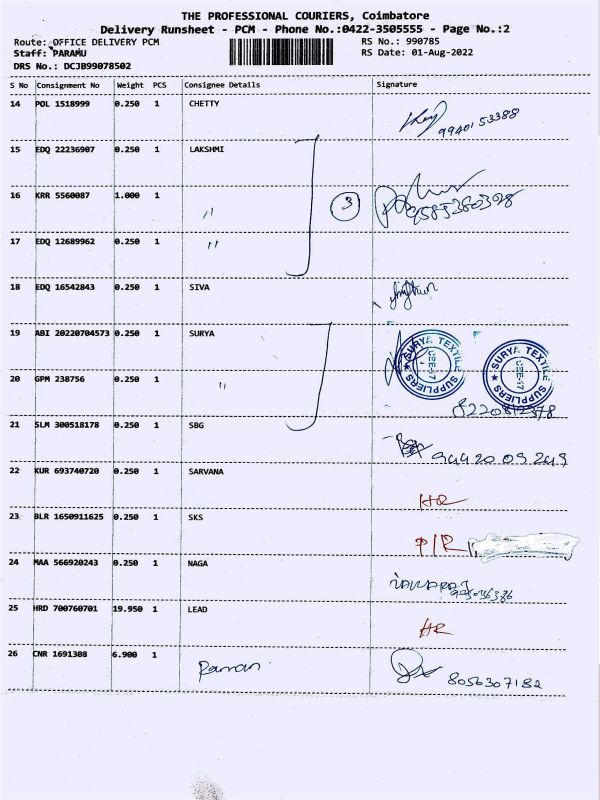 THE PROFESSIONAL COURIERS, Coimbatore
Delivery Runsheet - PCM - Phone No.:0422-3505555 - Page No.:2
Route: OFFICE DELIVERY PCM RS No.: 990785
Staff: PARAMU RS Date: 01-Aug-2022
DRS No.: DCJB99078502
S No Consignment No Weight PCS Consignee Details Signature
14 POL 1518999 0.250 1 CHETTY 9940153388
15 EDQ 22236907 0.250 1 LAKSHMI
16 KRR 5560087 1.000 1 " 3 9585360398
17 EDQ 12689962 0.250 1 "
18 EDQ 16542843 0.250 1 SIVA
19 ABI 20220704573 0.250 1 SURYA SURYA TEXTILE SUPPLIERS SURYA TEXTILE SUPPLIERS
20 GPM 238756 0.250 1 "
21 SLM 300518178 0.250 1 SBG
22 KUR 693740720 0.250 1 SARVANA
23 BLR 1650911625 0.250 1 SKS P/R
24 MAA 566920243 0.250 1 NAGA
25 HRD 700760701 19.950 1 LEAD
26 CNR 1691308 6.900 1 8056307182